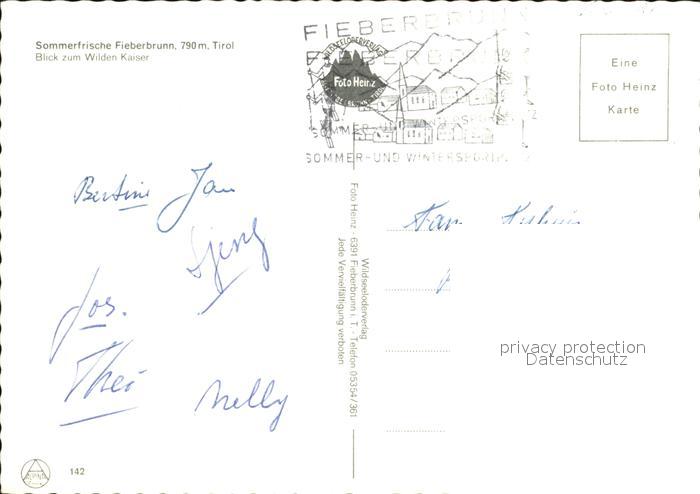 Sommerfrische Fieberbrunn, 790 m, Tirol
Blick zum Wilden Kaiser
FIEBERBRUNN
FIEBERBRUNN
WILDSEELODERVERLAG
Foto Heinz
SOMMER-UND WINTERSPORT
SOMMER-UND WINTERSPORT
Eine
Foto Heinz
Karte
Bertine Jan
Sjeng
Jos.
Theo
Nelly
Fam
Wildseeloderverlag
Foto Heinz - 6391 Fieberbrunn i. T. - Telefon 05354/361
Jede Vervielfältigung verboten
privacy protection
Datenschutz
142